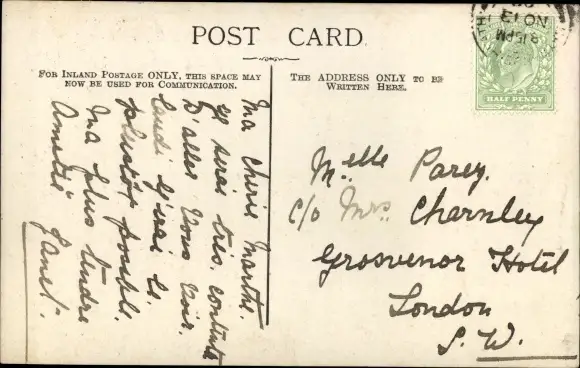 POST CARD.
FOR INLAND POSTAGE ONLY, THIS SPACE MAY
NOW BE USED FOR COMMUNICATION.
THE ADDRESS ONLY TO BE
WRITTEN HERE.
Ma Cherie Marthe.
je serai tres contente
D'aller Vous Voir.
Lundi J'irai le
plustôt possible.
Ma plus tendre
Amitié
Janet.
Melle Parey.
c/o Mrs. Charnley
Grosvenor Hotel
London
S. W.
NO 13
8.15PM
HALF PENNY